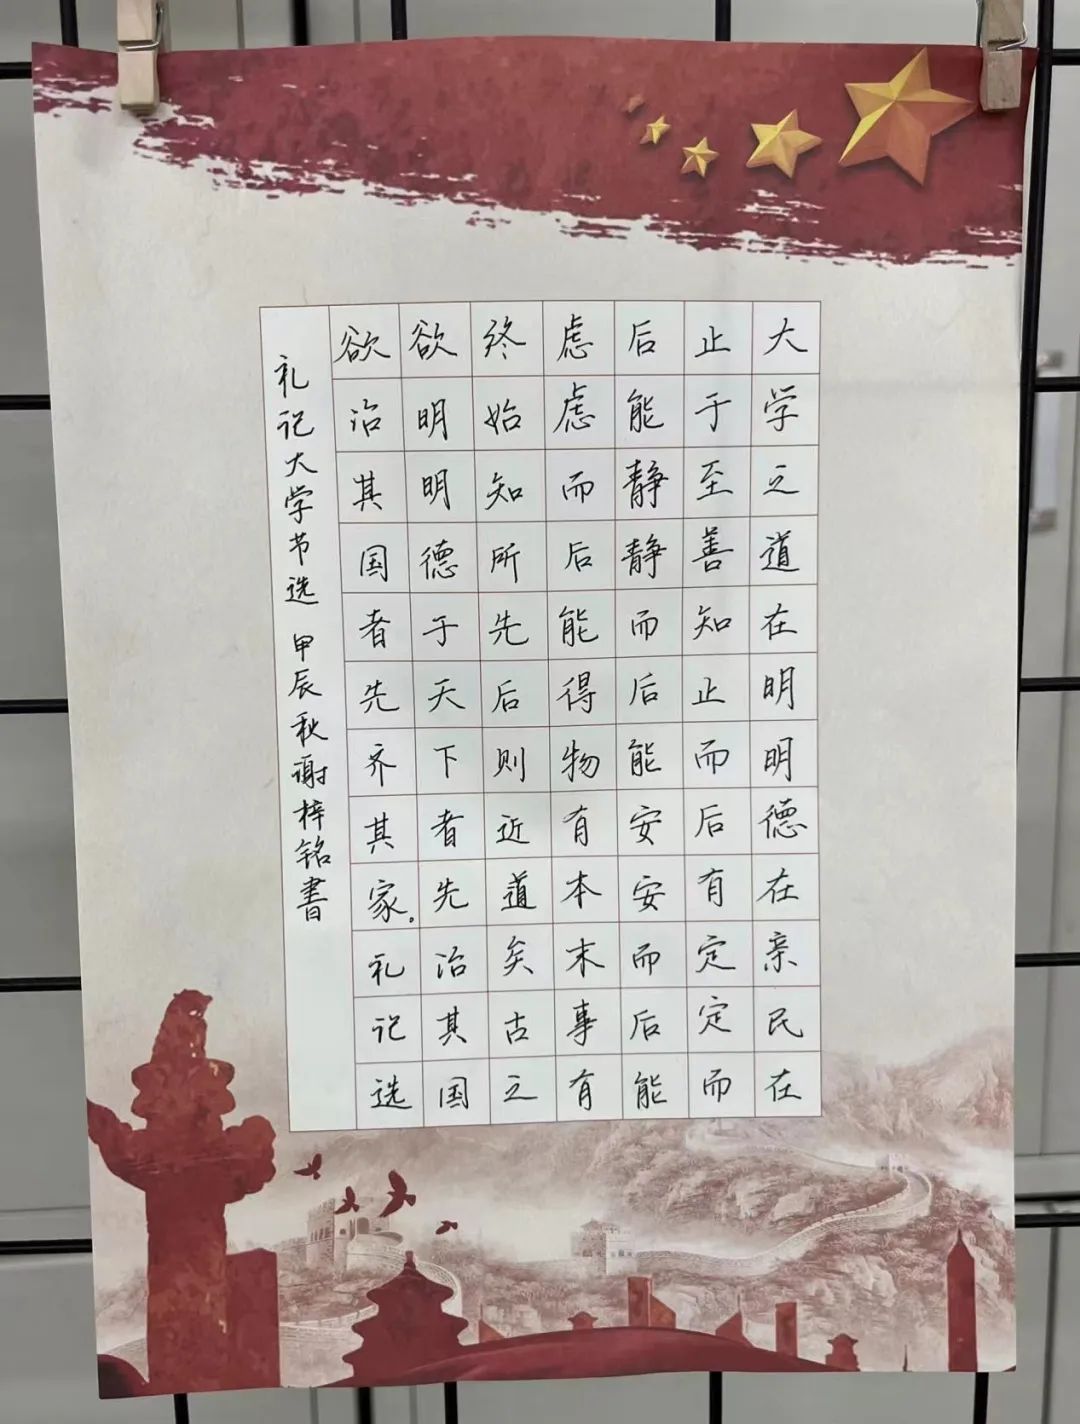 大学之道在明明德在亲民在
止于至善知止而后有定定而
后能静静而后能安安而后能
虑虑而后能得物有本末事有
终始知所先后则近道矣古之
欲明明德于天下者先治其国
欲治其国者先齐其家。礼记选
礼记大学节选 甲辰秋谢梓铭書